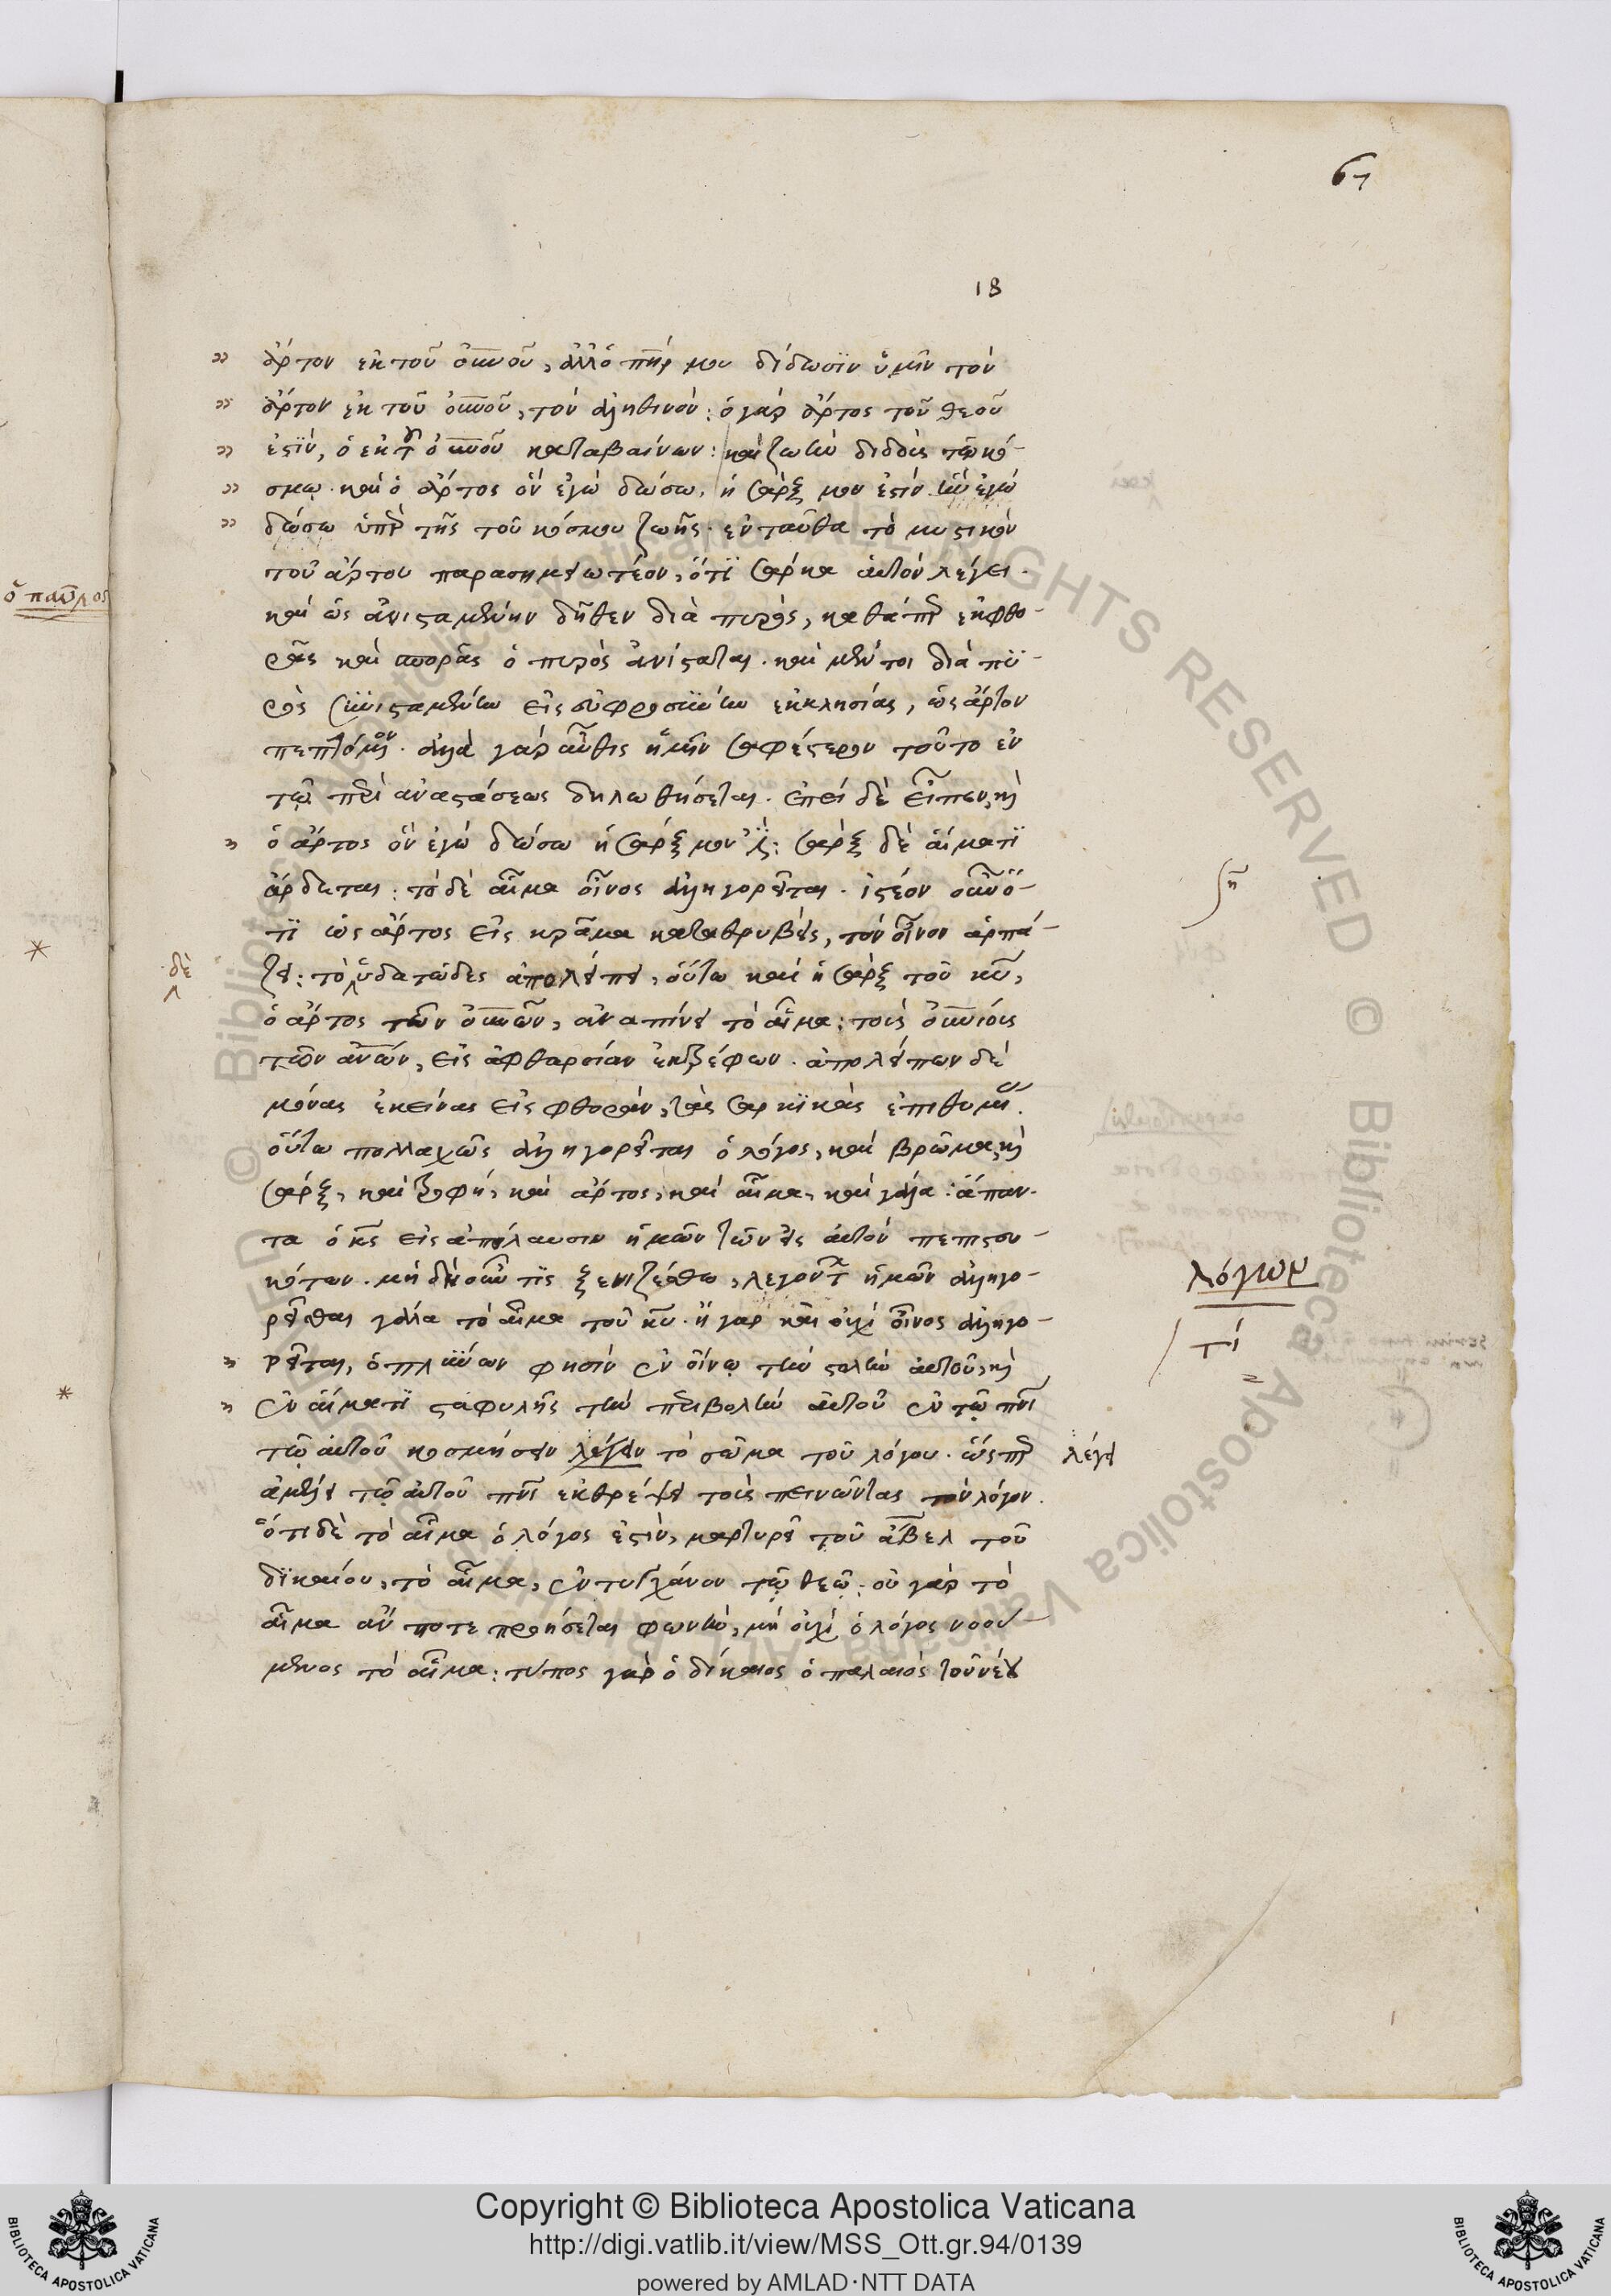 67
18
ἄρτον ἐκ τοῦ οὐνοῦ, ἀλλ' ὁ πήρ μου δίδωσϊν ὑμῖν τὸν
ἄρτον ἐκ τοῦ οὐνοῦ, τὸν ἀληθινόν: ὁ γὰρ ἄρτος τοῦ θεοῦ
ἐστϊν, ὁ ἐκ τοῦ οὐνοῦ καταβαίνων: καὶ ζωὴν διδοὺς τῷ κό-
σμῳ. καὶ ὁ ἄρτος ὃν ἐγὼ δώσω, ἡ σάρξ μου ἐστίν ἣν ἐγὼ
δώσω ὑπὲρ τῆς τοῦ κόσμου ζωῆς. ἐνταῦθα τὸ μυστικὸν
τοῦ ἄρτου παρασημειωτέον, ὅτϊ σάρκα αὐτὸν λέγει.
καὶ ὡς ἀνισταμένην δῆθεν διὰ πυρός, καθάπερ ἐκ φθο-
ρᾶς καὶ σπορᾶς ὁ πυρὸς ἀνίσταται. καὶ μέντοι διὰ πϋ-
ρὸς συνισταμένην εἰς εὐφροσύνην ἐκκλησίας, ὡς ἄρτον
πεπτόμενον. ἀλλὰ γὰρ αὖθις ἡμῖν σαφέστερον τοῦτο ἐν
τῷ περὶ ἀναστάσεως δηλωθήσεται. ἐπεὶ δὲ εἶπεν, καὶ
ὁ ἄρτος ὃν ἐγὼ δώσω ἡ σάρξ μου ἐστϊ: σὰρξ δὲ αἵματϊ
ἄρδεται: τὸ δὲ αἷμα οἶνος ἀλληγορεῖται. ἰστέον οὖν ὅ-
τϊ ὡς ἄρτος εἰς κρᾶμα καταθρυβεὶς, τὸν οἶνον ἁρπά-
δὲ
ζει: τὸ ὑδατῶδες ἀπολείπει, οὕτω καὶ ἡ σὰρξ τοῦ κυ,
ὁ ἄρτος τῶν οὐνῶν, ἀναπίνει τὸ αἷμα: τοὺς οὐνίους
τῶν ἀνων, εἰς ἀφθαρσίαν ἐκτρέφων. ἀπολείπων δὲ
μόνας ἐκείνας εἰς φθοράν, τὰς σαρκϊκὰς ἐπιθυμίας.
οὕτω πολλαχῶς ἀλληγορεῖται ὁ λόγος, καὶ βρῶμα, καὶ
σάρξ, καὶ τροφή, καὶ ἄρτος, καὶ αἷμα, καὶ γάλα: ἅπαν-
τα ὁ κς εἰς ἀπόλαυσιν ἡμῶν τῶν εἰς αὐτὸν πεπιστευ-
κότων. μὴ δὴ οὖν τϊς ξενιζέσθω, λεγόντων ἡμῶν ἀλληγο-
ρεῖσθαι γάλα τὸ αἷμα τοῦ κυ. ἢ γὰρ καὶ οὐχὶ οἶνος ἀλληγο-
ρεῖται, ὁ πλύνων φησὶν ἐν οἴνῳ τὴν στολὴν αὐτοῦ, καὶ
ἐν αἵματϊ σταφυλῆς τὴν περιβολὴν αὐτοῦ ἐν τῷ πνι
τῷ αὐτοῦ κοσμήσειν λέγειν τὸ σῶμα τοῦ λόγου. ὥσπερ
ἀμέλει τῷ αὐτοῦ πνι ἐκθρέψει τοὺς πεινῶντας τὸν λόγον.
ὅτι δὲ τὸ αἷμα ὁ λόγος ἐστὶν, μαρτυρεῖ τοῦ ἄβελ τοῦ
δϊκαίου, τὸ αἷμα, ἐντυγχάνον τῷ θεῷ: οὐ γὰρ τὸ
αἷμα ἄν ποτε προήσεται φωνὴν, μὴ οὐχὶ ὁ λόγος νοού-
μενος τὸ αἷμα: τύπος γὰρ ὁ δίκαιος ὁ παλαιὸς τοῦ νέου
λόγων
τί
λέγει
ὁ παῦλος
Copyright © Biblioteca Apostolica Vaticana
http://digi.vatlib.it/view/MSS_Ott.gr.94/0139
powered by AMLAD·NTT DATA
BIBLIOTECA APOSTOLICA VATICANA
BIBLIOTECA APOSTOLICA VATICANA